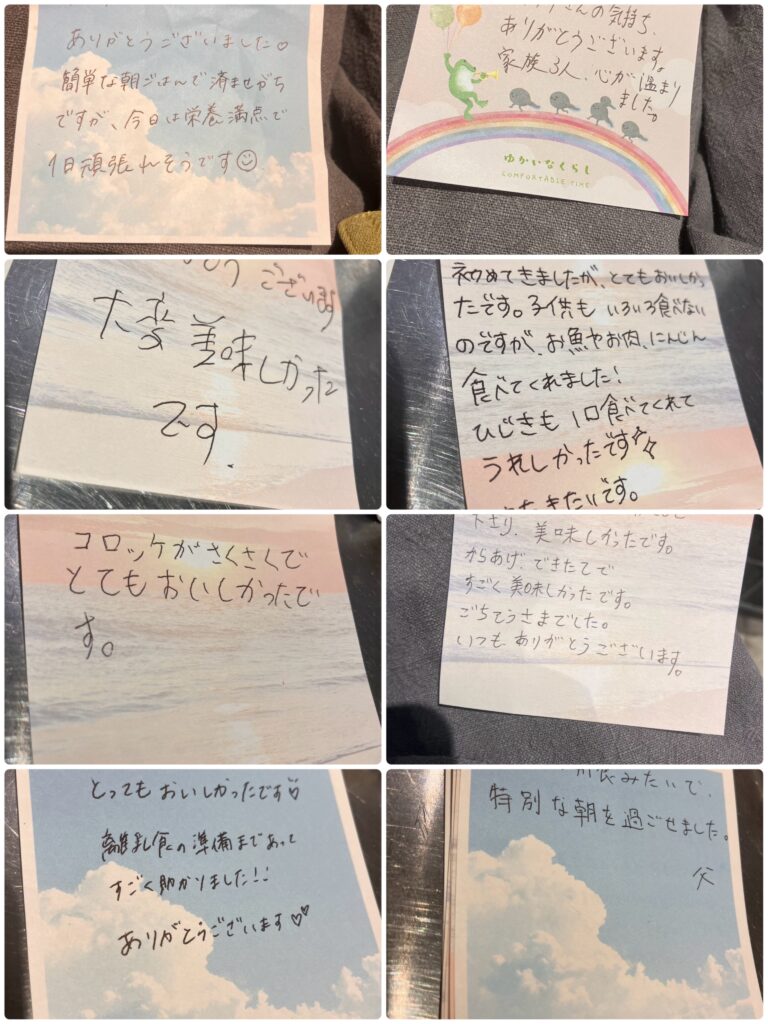 ありがとうございました♡
簡単な朝ごはんで済ませがち
ですが、今日は栄養満点で
1日頑張れそうです☺
さんの気持ち、
ありがとうございます。
家族3人、心が温まり
ました。
ゆかいなくらし
COMFORTABLE TIME
ございます
大変美味しかった
です.
初めてきましたが、とてもおいしかっ
たです。子供も いろいろ食べない
のですが、お魚やお肉、にんじん
食べてくれました!
ひじきも 1口食べてくれて
うれしかったです
きたいです。
コロッケがさくさくで
とてもおいしかったで
す。
下さり、美味しかったです。
からあげ、できたてで
すごく美味しかったです。
ごちそうさまでした。
いつも ありがとうございます。
とってもおいしかったです♡
離乳食の準備まであって
すごく助かりました!!
ありがとうございます♡♡
みたいで、
特別な朝を過ごせました。
父